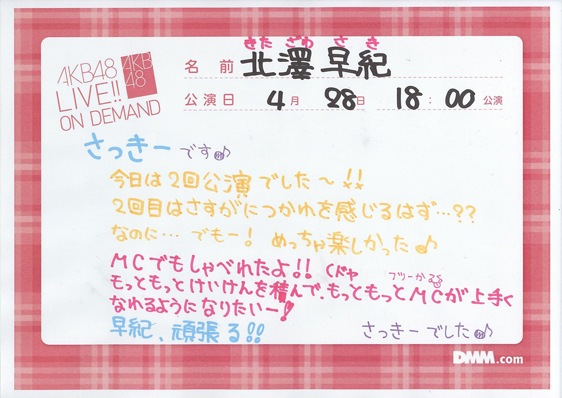 AKB48
LIVE!!
ON DEMAND
AKB
48
きた ざわ さ き
名 前 北澤 早紀
公演日 4月 28日 18:00 公演
さっきーです♪
今日は2回公演でした〜!!
2回目はさすがにつかれを感じるはず…??
なのに… でもー! めっちゃ楽しかった♪
MCでもしゃべれたよ!! (ドヤ
もっともっとけいけんを積んで、もっともっとMCが上手く
なれるようになりたいー!
早紀、頑張る!!
さっきーでした♪
DMM.com